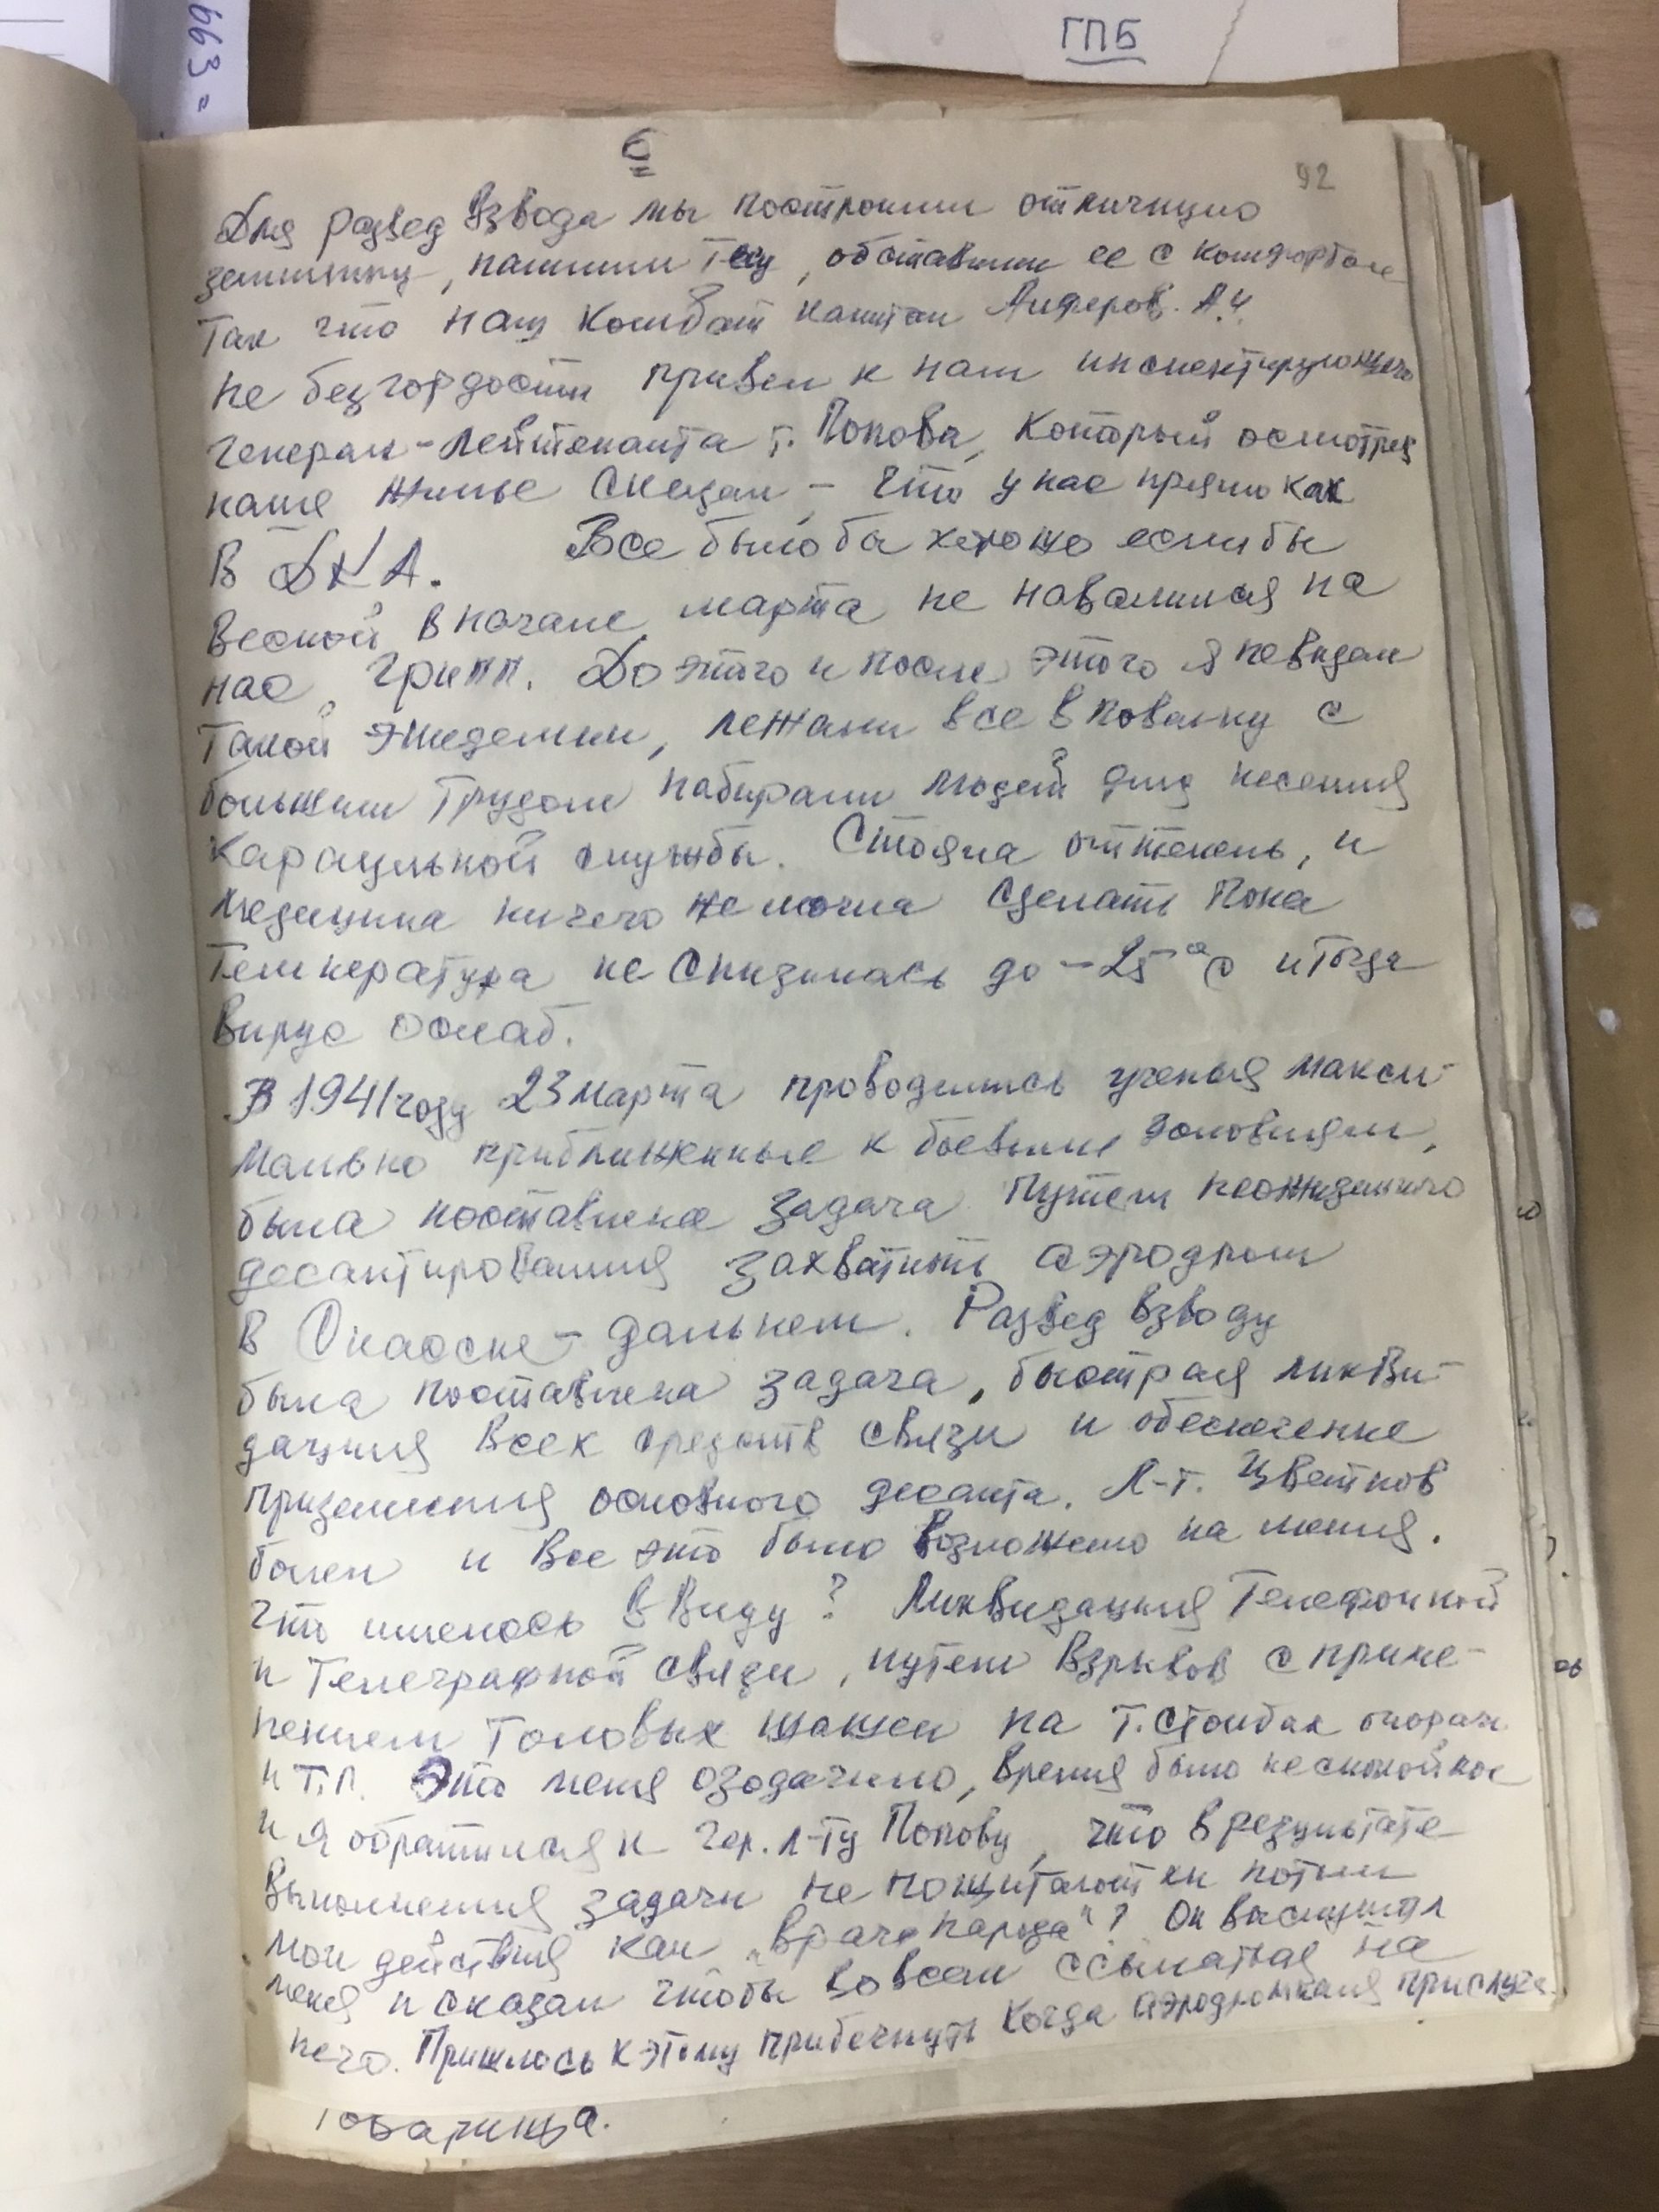 663 =
ГПБ
6
92
Для развед взвода мы построили отличную
землянку, напилили тёсу, обставили ее с комфортом
Так что наш комбат капитан Алферов. А.Ч.
не без гордости привел к нам инспектирующего
генерал-лейтенанта т. Попова, который осмотрев
наше жилье сказал - что у нас прямо как
в ДКА. Все было ба хорошо если бы
весной в начале марта не навалился на
нас грипп. До этого и после этого я невидел
такой эпидемии, лежали все в повалку с
большим трудом набирали людей для несения
караульной службы. Стояла оттепель, и
медицина ничего не могла сделать пока
температура не снизилась до -25°С и тогда
вирус ослаб.
В 1941 году 23 марта проводились ученья макси-
мально приближенные к боевым условиям,
была поставлена задача путем неожиданного
десантирования захватить аэродром
в Спасске-дальнем. Развед взводу
была поставлена задача, быстрая ликви-
дация всех средств связи и обеспечение
приземления основного десанта. Л-т. Цветков
болен и все это было возложено на меня.
Что имелось в виду? Ликвидация телефонной
и телеграфной связи, путем взрывов с приме-
нением толовых шашек на т. столбах опорах
и т.п. Это меня озадачило, время было неспокойное
и я обратился к ген. л-ту Попову, что в результате
выполнения задачи не посчитают ли потом
мои действия как "врага народа"? Он выслушал
меня и сказал чтобы во всем ссылаться на
него. Пришлось к этому прибегнуть когда аэродромная прислуга
товарища.